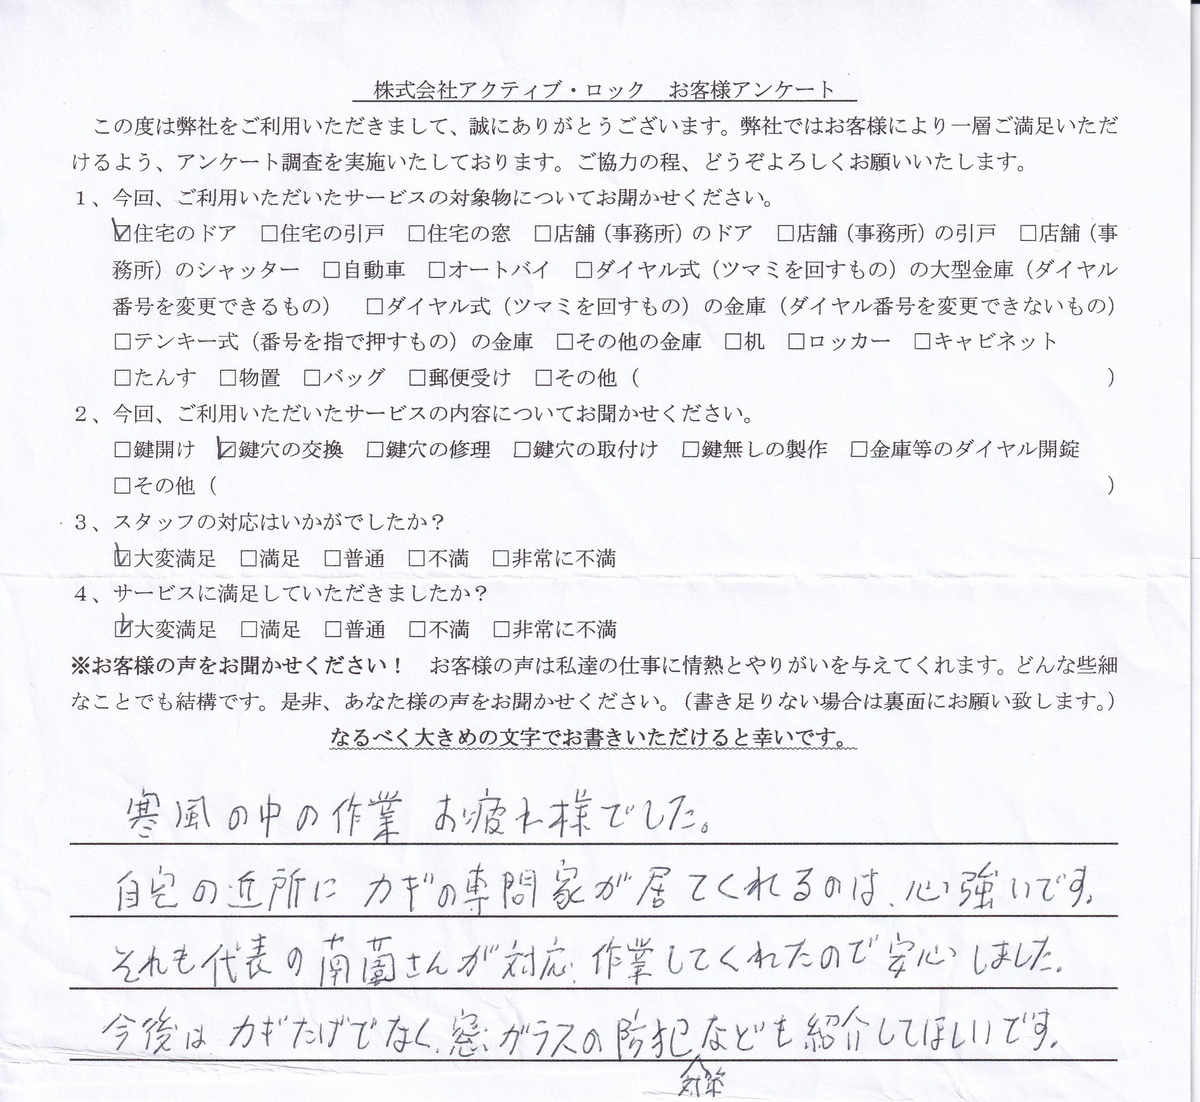 株式会社アクティブ・ロック　お客様アンケート
この度は弊社をご利用いただきまして、誠にありがとうございます。弊社ではお客様により一層ご満足いただ
けるよう、アンケート調査を実施いたしております。ご協力の程、どうぞよろしくお願いいたします。
１、今回、ご利用いただいたサービスの対象物についてお聞かせください。
☑住宅のドア　□住宅の引戸　□住宅の窓　□店舗（事務所）のドア　□店舗（事務所）の引戸　□店舗（事
務所）のシャッター　□自動車　□オートバイ　□ダイヤル式（ツマミを回すもの）の大型金庫（ダイヤル
番号を変更できるもの）　□ダイヤル式（ツマミを回すもの）の金庫（ダイヤル番号を変更できないもの）
□テンキー式（番号を指で押すもの）の金庫　□その他の金庫　□机　□ロッカー　□キャビネット
□たんす　□物置　□バッグ　□郵便受け　□その他（　　　　　　　　　　）
２、今回、ご利用いただいたサービスの内容についてお聞かせください。
□鍵開け　☑鍵穴の交換　□鍵穴の修理　□鍵穴の取付け　□鍵無しの製作　□金庫等のダイヤル開錠
□その他（　　　　　　　　　　）
３、スタッフの対応はいかがでしたか？
☑大変満足　□満足　□普通　□不満　□非常に不満
４、サービスに満足していただきましたか？
☑大変満足　□満足　□普通　□不満　□非常に不満
※お客様の声をお聞かせください！　お客様の声は私達の仕事に情熱とやりがいを与えてくれます。どんな些細
なことでも結構です。是非、あなた様の声をお聞かせください。（書き足りない場合は裏面にお願い致します。）
なるべく大きめの文字でお書きいただけると幸いです。
寒風の中の作業 お疲れ様でした。
自宅の近所に カギの専門家が居てくれるのは、心強いです。
それも代表の南薗さんが対応、作業してくれたので安心しました。
今後は カギだけでなく、窓ガラスの防犯なども紹介してほしいです。
対策